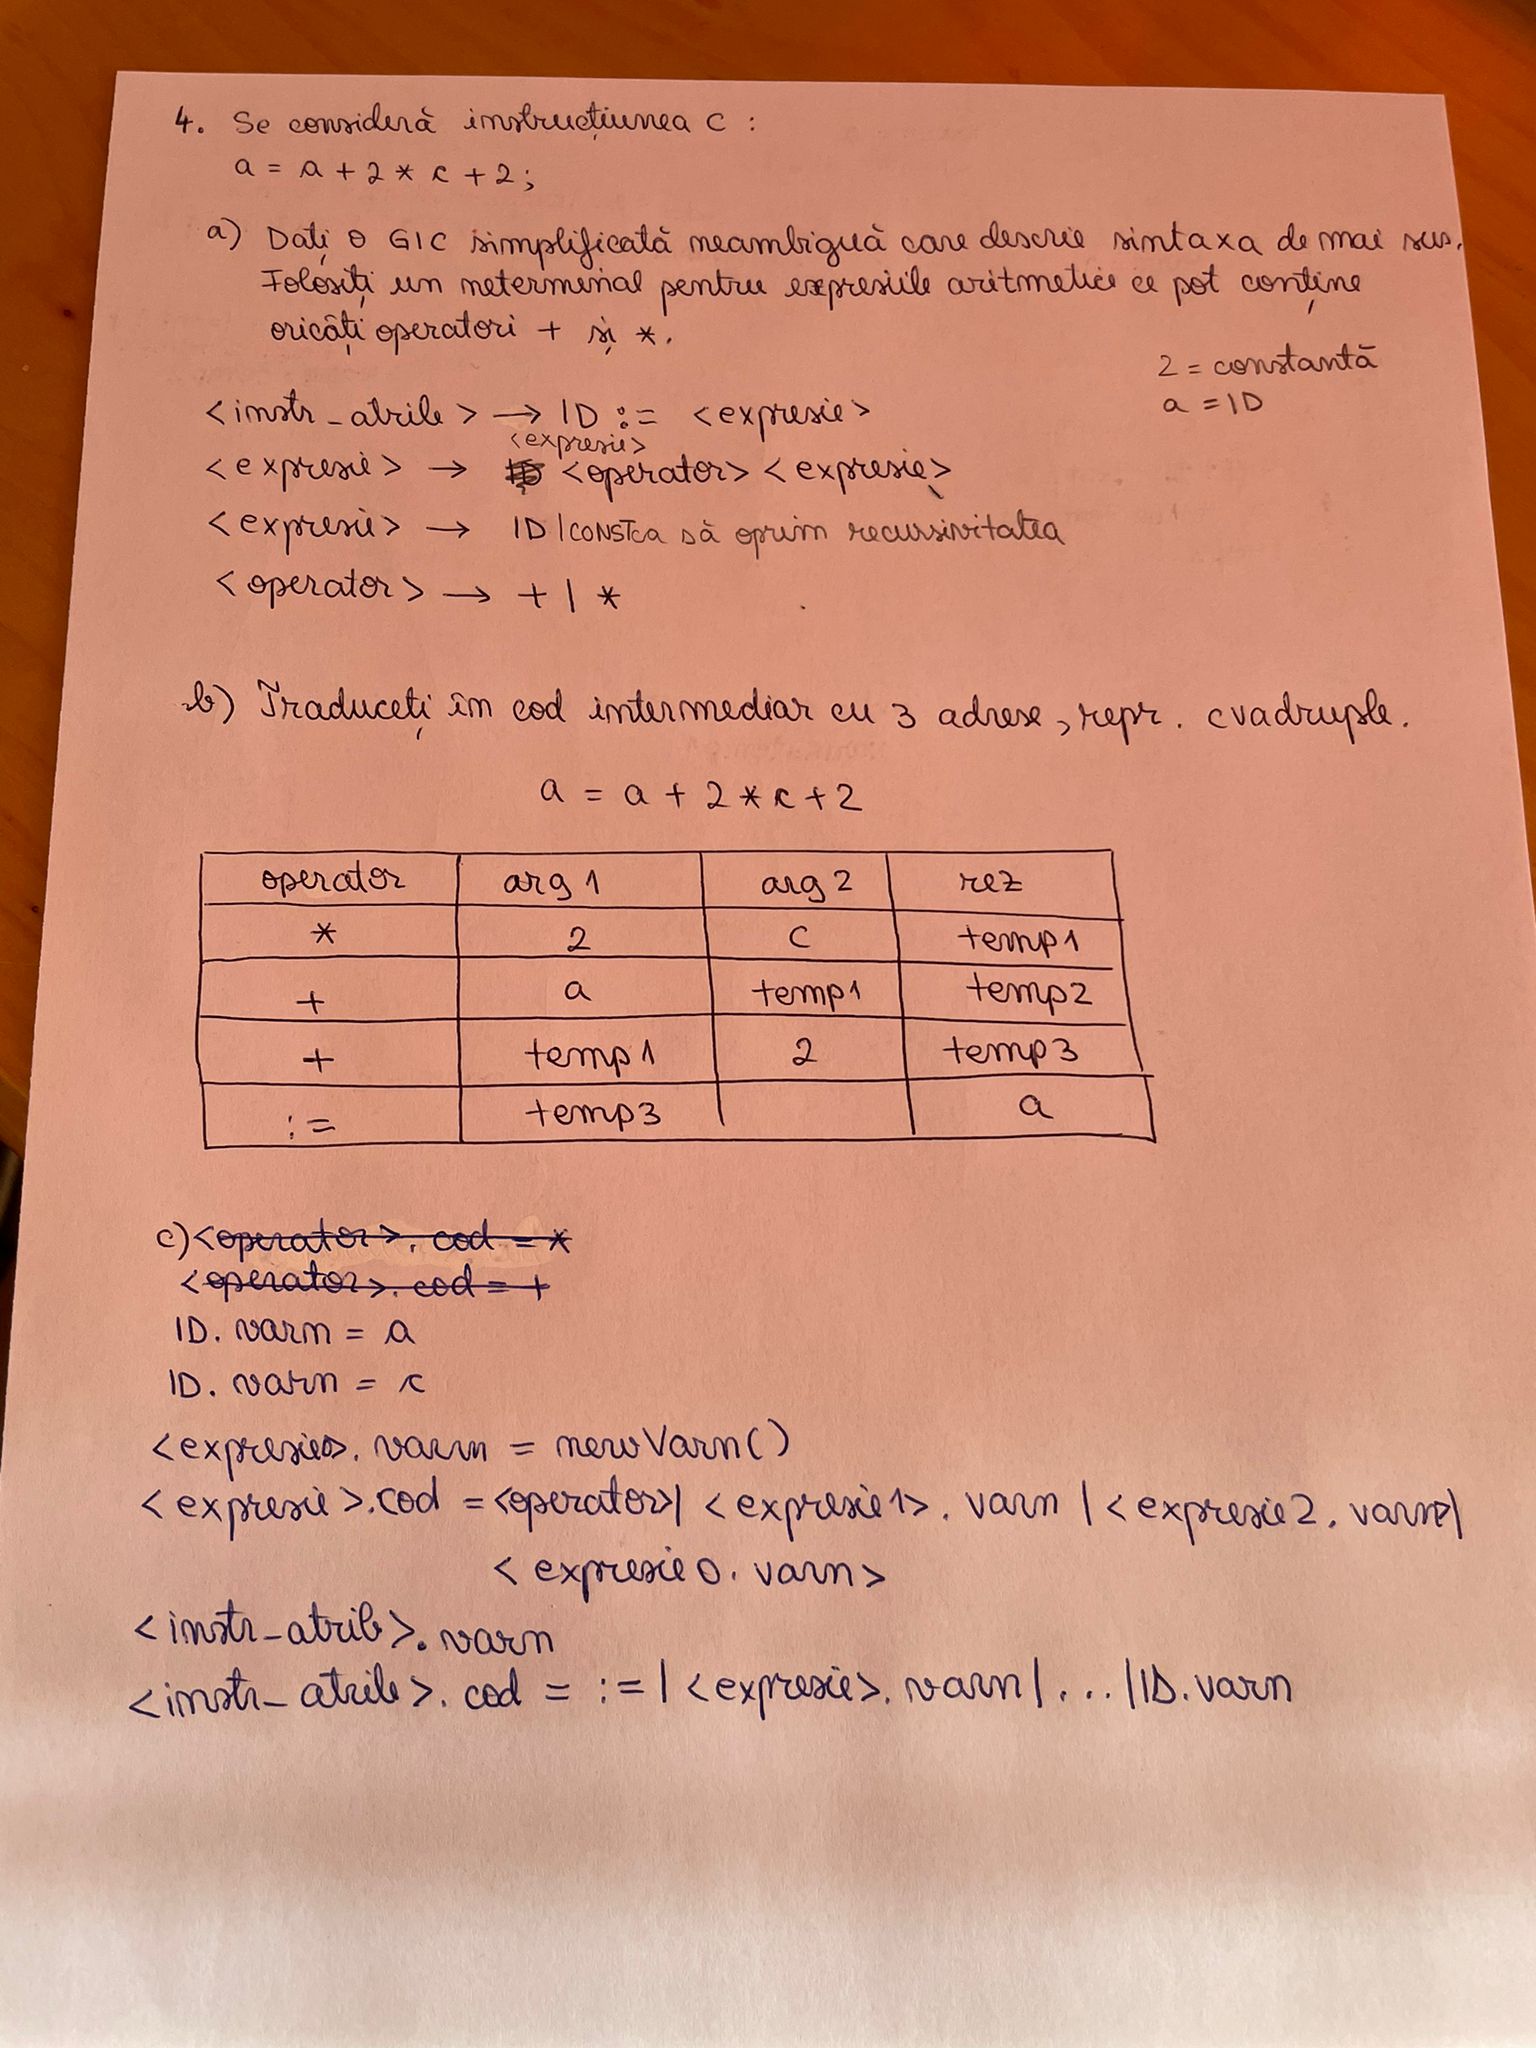 4. Se consideră instrucțiunea C :
a = a + 2 * c + 2;
a) Dați o GIC simplificată neambiguă care descrie sintaxa de mai sus.
Folosiți un neterminal pentru expresiile aritmetice ce pot conține
oricâți operatori + și *.
2 = constantă
a = ID
<instr_atrib> → ID := <expresie>
<expresie> → <expresie> <operator> <expresie>
<expresie> → ID | CONST ca să oprim recursivitatea
<operator> → + | *
b) Traduceți în cod intermediar cu 3 adrese, repr. cvadruple.
a = a + 2 * c + 2
operator arg 1 arg 2 rez
* 2 C temp1
+ a temp1 temp2
+ temp1 2 temp3
:= temp3 a
c) <operator>. cod = *
<operator>. cod = +
ID. varn = a
ID. varn = c
<expresie0>. varn = newVarn()
<expresie>.cod = <operator>| <expresie1>. varn | <expresie2. varn>|
<expresie0. varn>
<instr_atrib>. varn
<instr_atrib>. cod = := | <expresie>. varn | ... | ID. varn